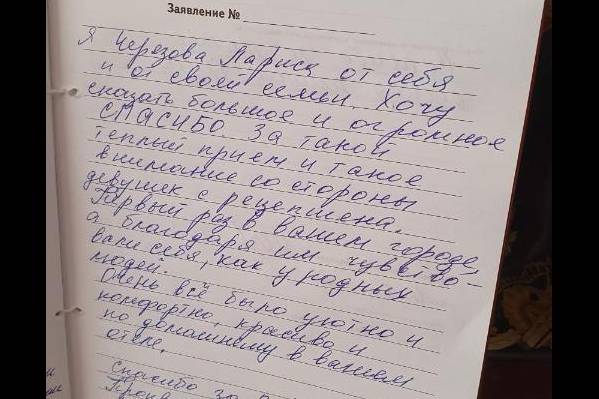 Заявление №
Я Черезова Лариса от себя
и от своей семьи. Хочу
сказать большое и огромное
СПАСИБО. За такой
теплый прием и такое
внимание со стороны
девушек с рецепшена.
Первый раз в вашем городе,
а благодаря им чувство-
вали себя, как у родных
людей.
Очень всё было уютно и
комфортно, красиво и
по домашнему в вашем
отеле.
Спасибо за